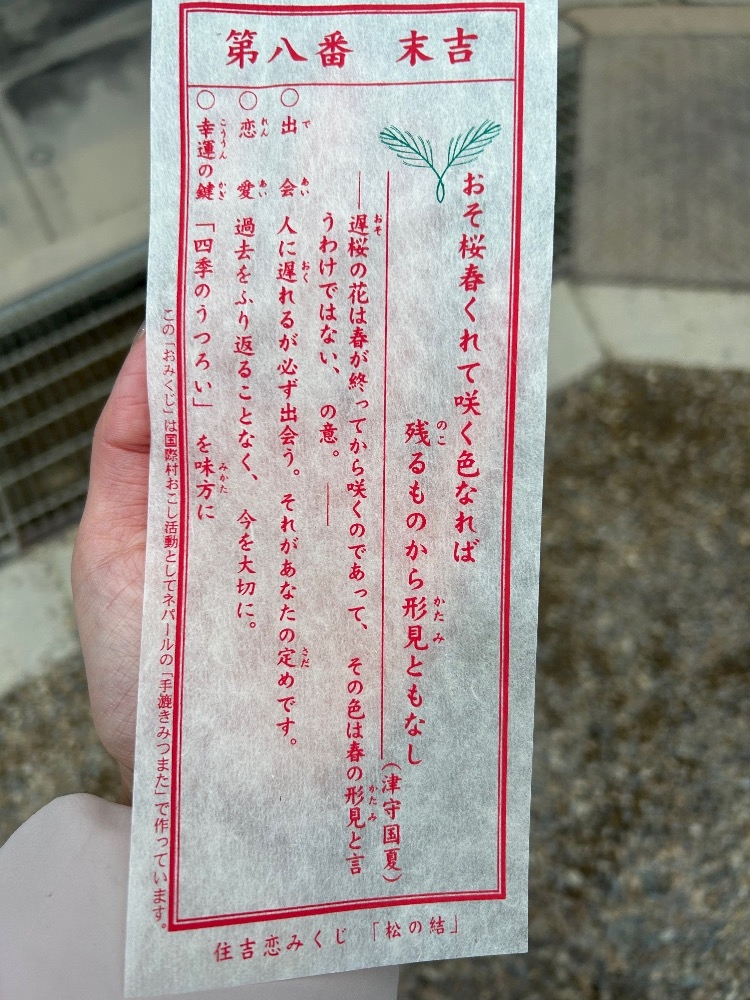 第八番　末吉
おそ桜春くれて咲く色なれば
残るものから形見ともなし
（津守国夏）
―遅桜の花は春が終ってから咲くのであって、その色は春の形見と言
うわけではない、の意。―
○出会　人に遅れるが必ず出会う。それがあなたの定めです。
○恋愛　過去をふり返ることなく、今を大切に。
○幸運の鍵　「四季のうつろい」を味方に
この「おみくじ」は国際村おこし活動としてネパールの「手漉きみつまた」で作っています。
住吉恋みくじ　「松の結」